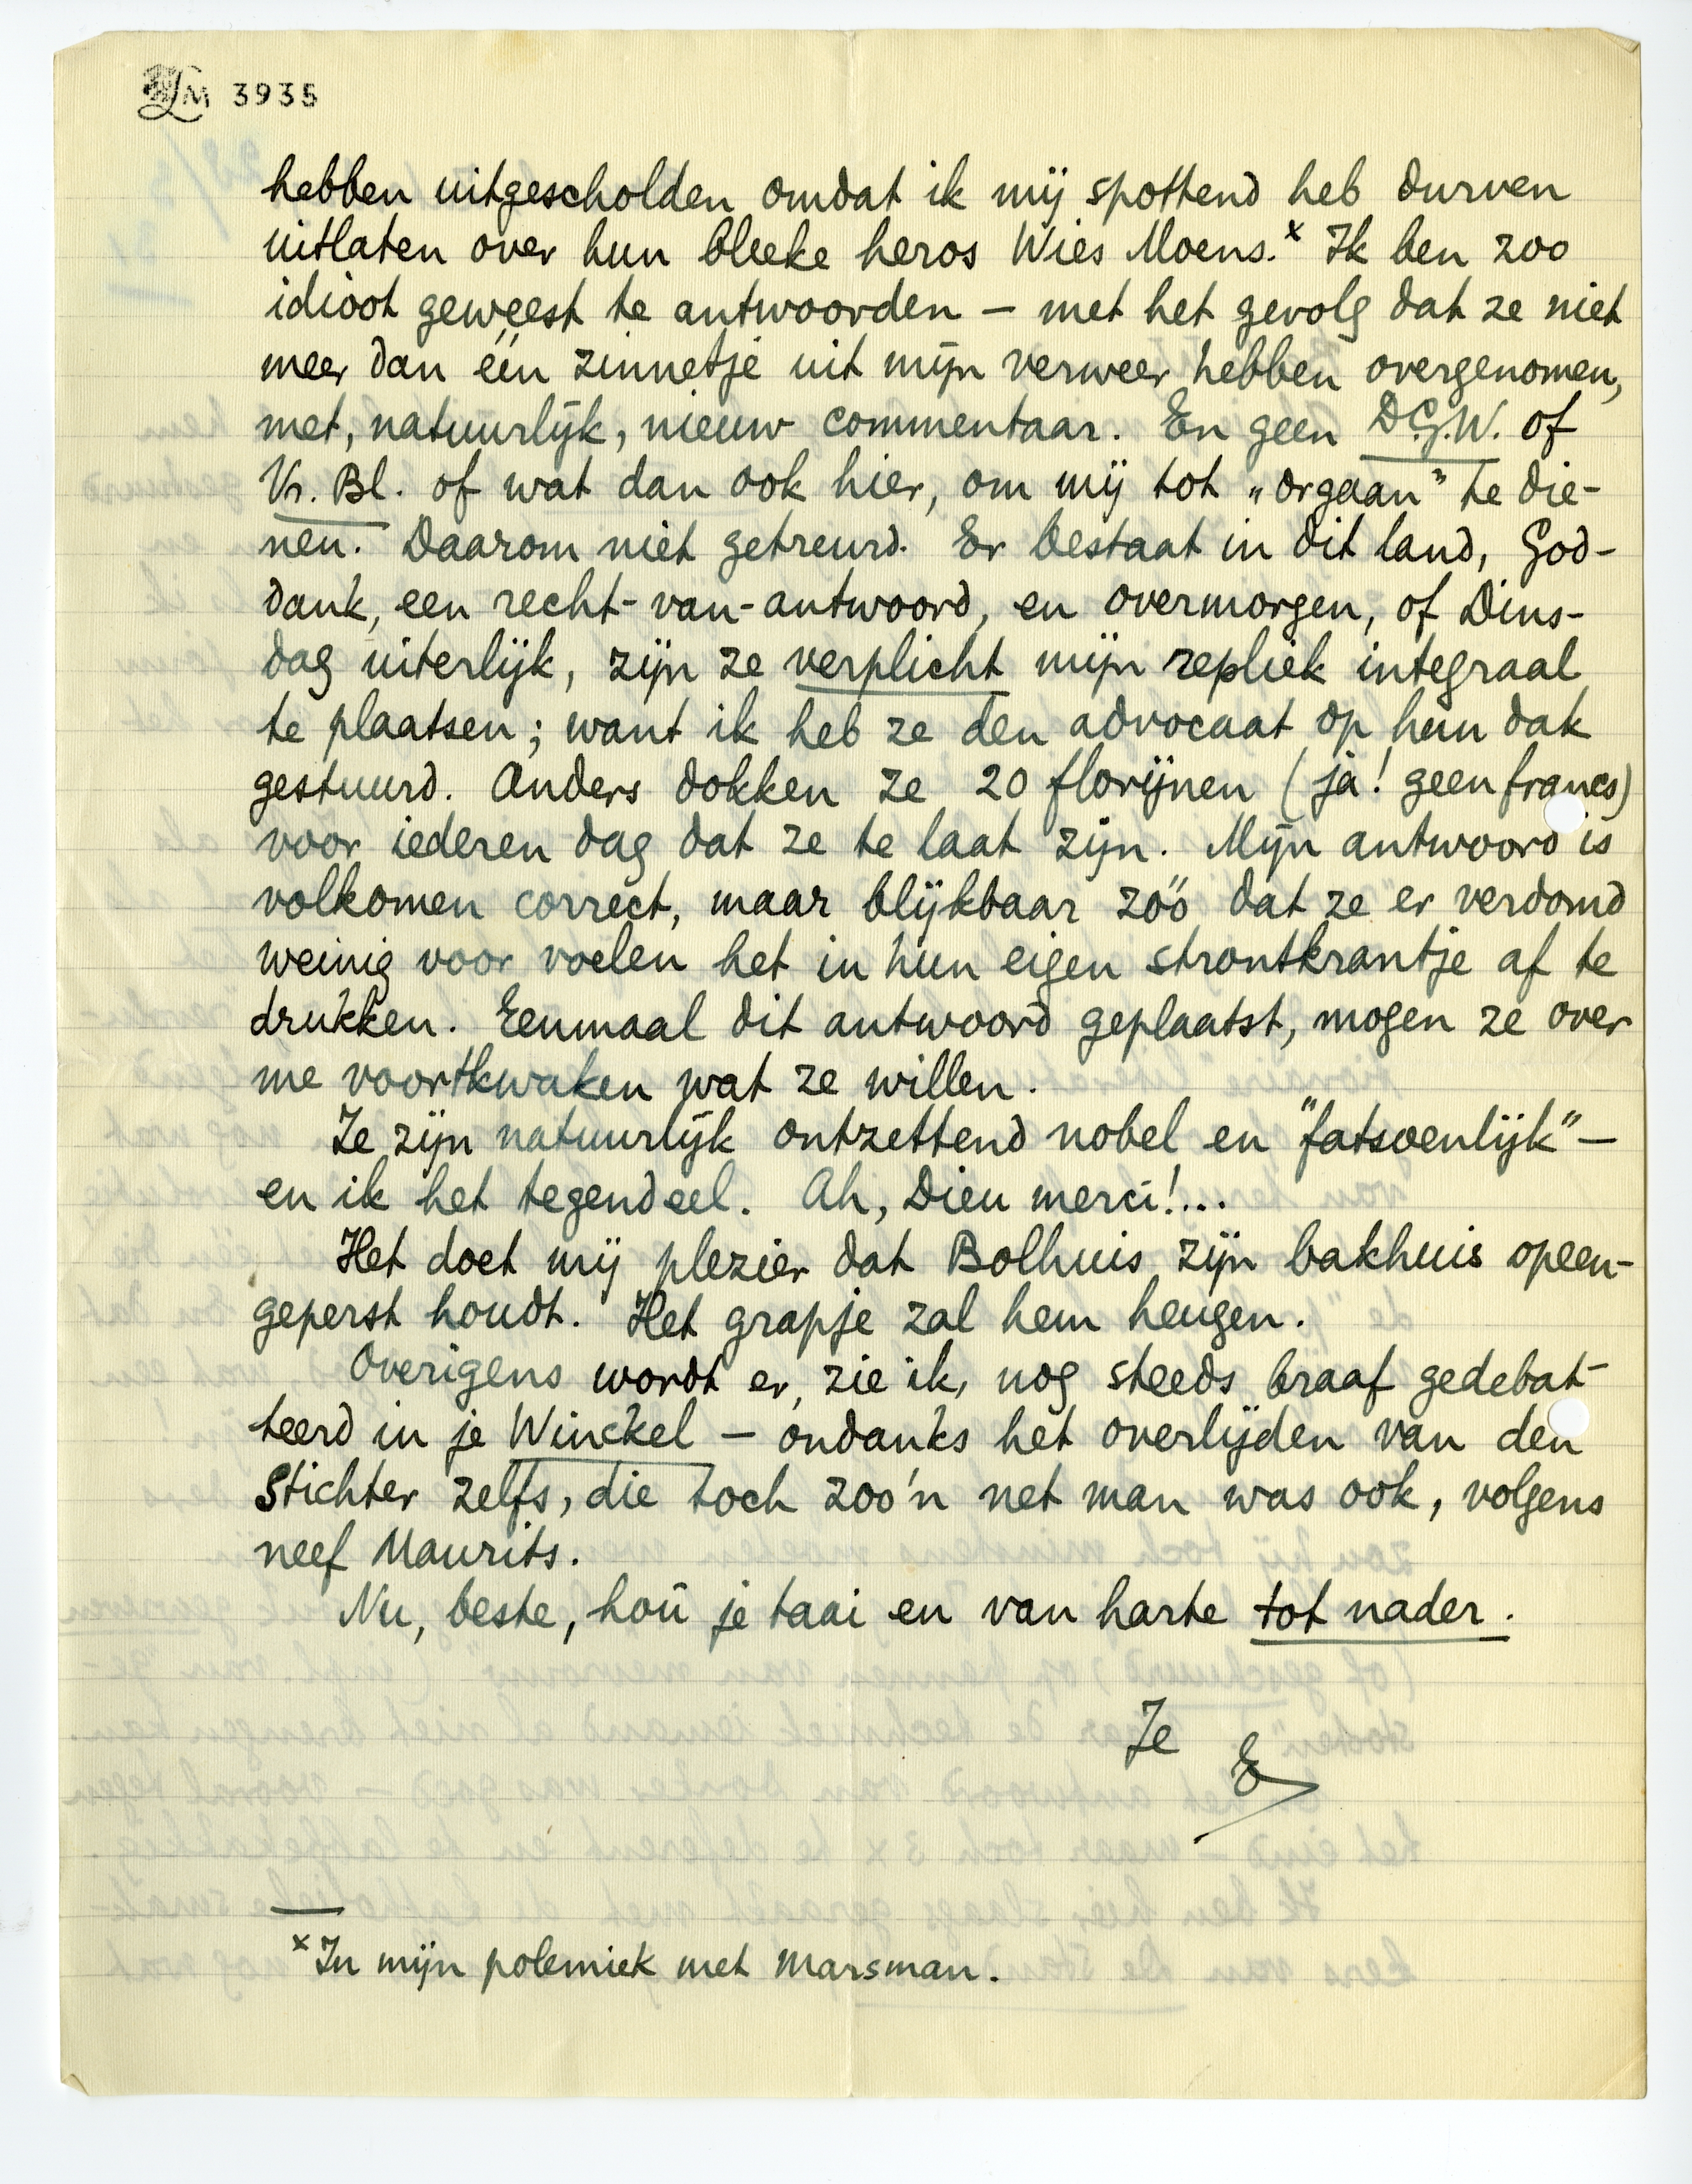 LM 3935
hebben uitgescholden omdat ik mij spottend heb durven
uitlaten over hun bleeke heros Wies Moens.ˣ Ik ben zoo
idioot geweest te antwoorden – met het gevolg dat ze niet
meer dan één zinnetje uit mijn verweer hebben overgenomen,
met, natuurlijk, nieuw commentaar. En geen D.G.W. of
Vr. Bl. of wat dan ook hier, om mij tot „orgaan" te die-
nen. Daarom niet getreurd. Er bestaat in dit land, God-
dank, een recht-van-antwoord, en overmorgen, of Dins-
dag uiterlijk, zijn ze verplicht mijn repliek integraal
te plaatsen; want ik heb ze den advocaat op hun dak
gestuurd. Anders dokken ze 20 florijnen (ja! geen francs)
voor iederen dag dat ze te laat zijn. Mijn antwoord is
volkomen correct, maar blijkbaar zóó dat ze er verdomd
weinig voor voelen het in hun eigen strontkrantje af te
drukken. Eenmaal dit antwoord geplaatst, mogen ze over
me voortkwaken wat ze willen.
Ze zijn natuurlijk ontzettend nobel en "fatsoenlijk" –
en ik het tegendeel. Ah, Dieu merci!...
Het doet mij plezier dat Bolhuis zijn bakhuis opeen-
geperst houdt. Het grapje zal hem heugen.
Overigens wordt er, zie ik, nog steeds braaf gedebat-
teerd in je Winckel – ondanks het overlijden van den
Stichter zelfs, die toch zoo'n net man was ook, volgens
neef Maurits.
Nu, beste, hou je taai en van harte tot nader.
Je
E
ˣ In mijn polemiek met Marsman.